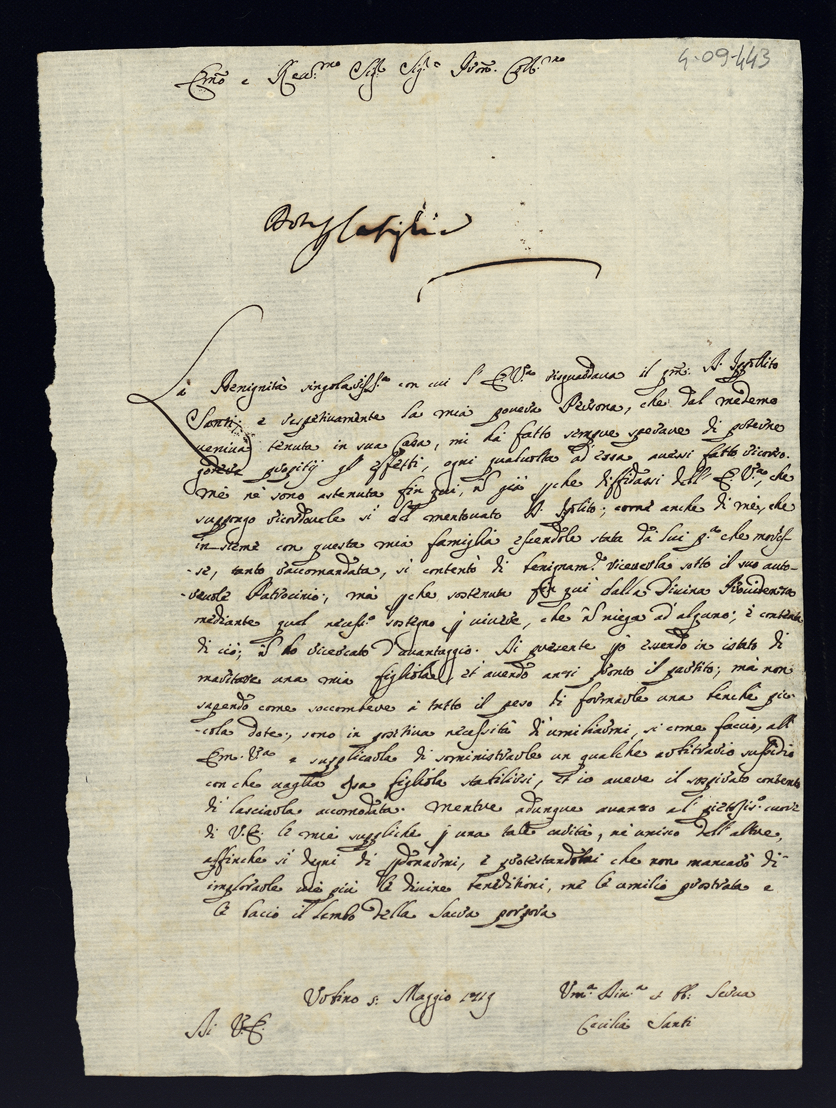 4-09-443
Em̃o e Rev.mo Sig.r Sig.r P͠ron. Coll.mo
La Benignità singolariss.ma con cui l' E.V.ra risguardava il q͠m. Ippolito
Santi; e respettivamente la mia povera Persona, che dal medemo
veniva tenuta in sua Casa, mi hà fatto sempre sperare di poterne
godere gl' effetti, ogni qualvolta ad' essa avessi fatto ricorso.
mè nè sono astenuta fin qui, diffidassi dell' E.V.ra, che
suppongo ricordevole si del mentovato Ippolito; come anche di mè, che
insieme con questa mia famiglia essendole stata dà lui p.a che moris-
-se, tanto raccomandata, si contentò di benignam.te riceverla sotto il suo auto-
-revole Patrocinio; mà sostenuta fin qui dalla Divina Providenza
mediante qual necess.o sostegno viuere, che niega ad' alguno; è contenta
di ciò; hò ricercato d'avantaggio. Di presente essendo in istato di
maritare una mia figliola, et' avendo anzi pronto il partito; mà non
sapendo come soccombere à tutto il peso di formarle una benchè pic-
-cola dote; sono in positiva necessità di umiliarmi, si come faccio, all'
Em. V.ra e supplicarla di somministrarle un qualche sussidio
con che vaglia figliola stabilirsi, et io avere il sospirato contento
di lasciarla accomodata. Mentre adunque avanzo al pietosis.o cuore
di V.E. le mie suppliche una tale carità, nè unisco dell' altre,
affinche si degni di perdonarmi, è protestandomi che non mancarò di
implorarle le divine benedizioni, me le umilio prostrata e
le bacio il lembo della Sacra porpora
Urbino 5: Maggio 1719
Um.a Div.a et Obb. Serva
Di V.E.
Cecilia Santi